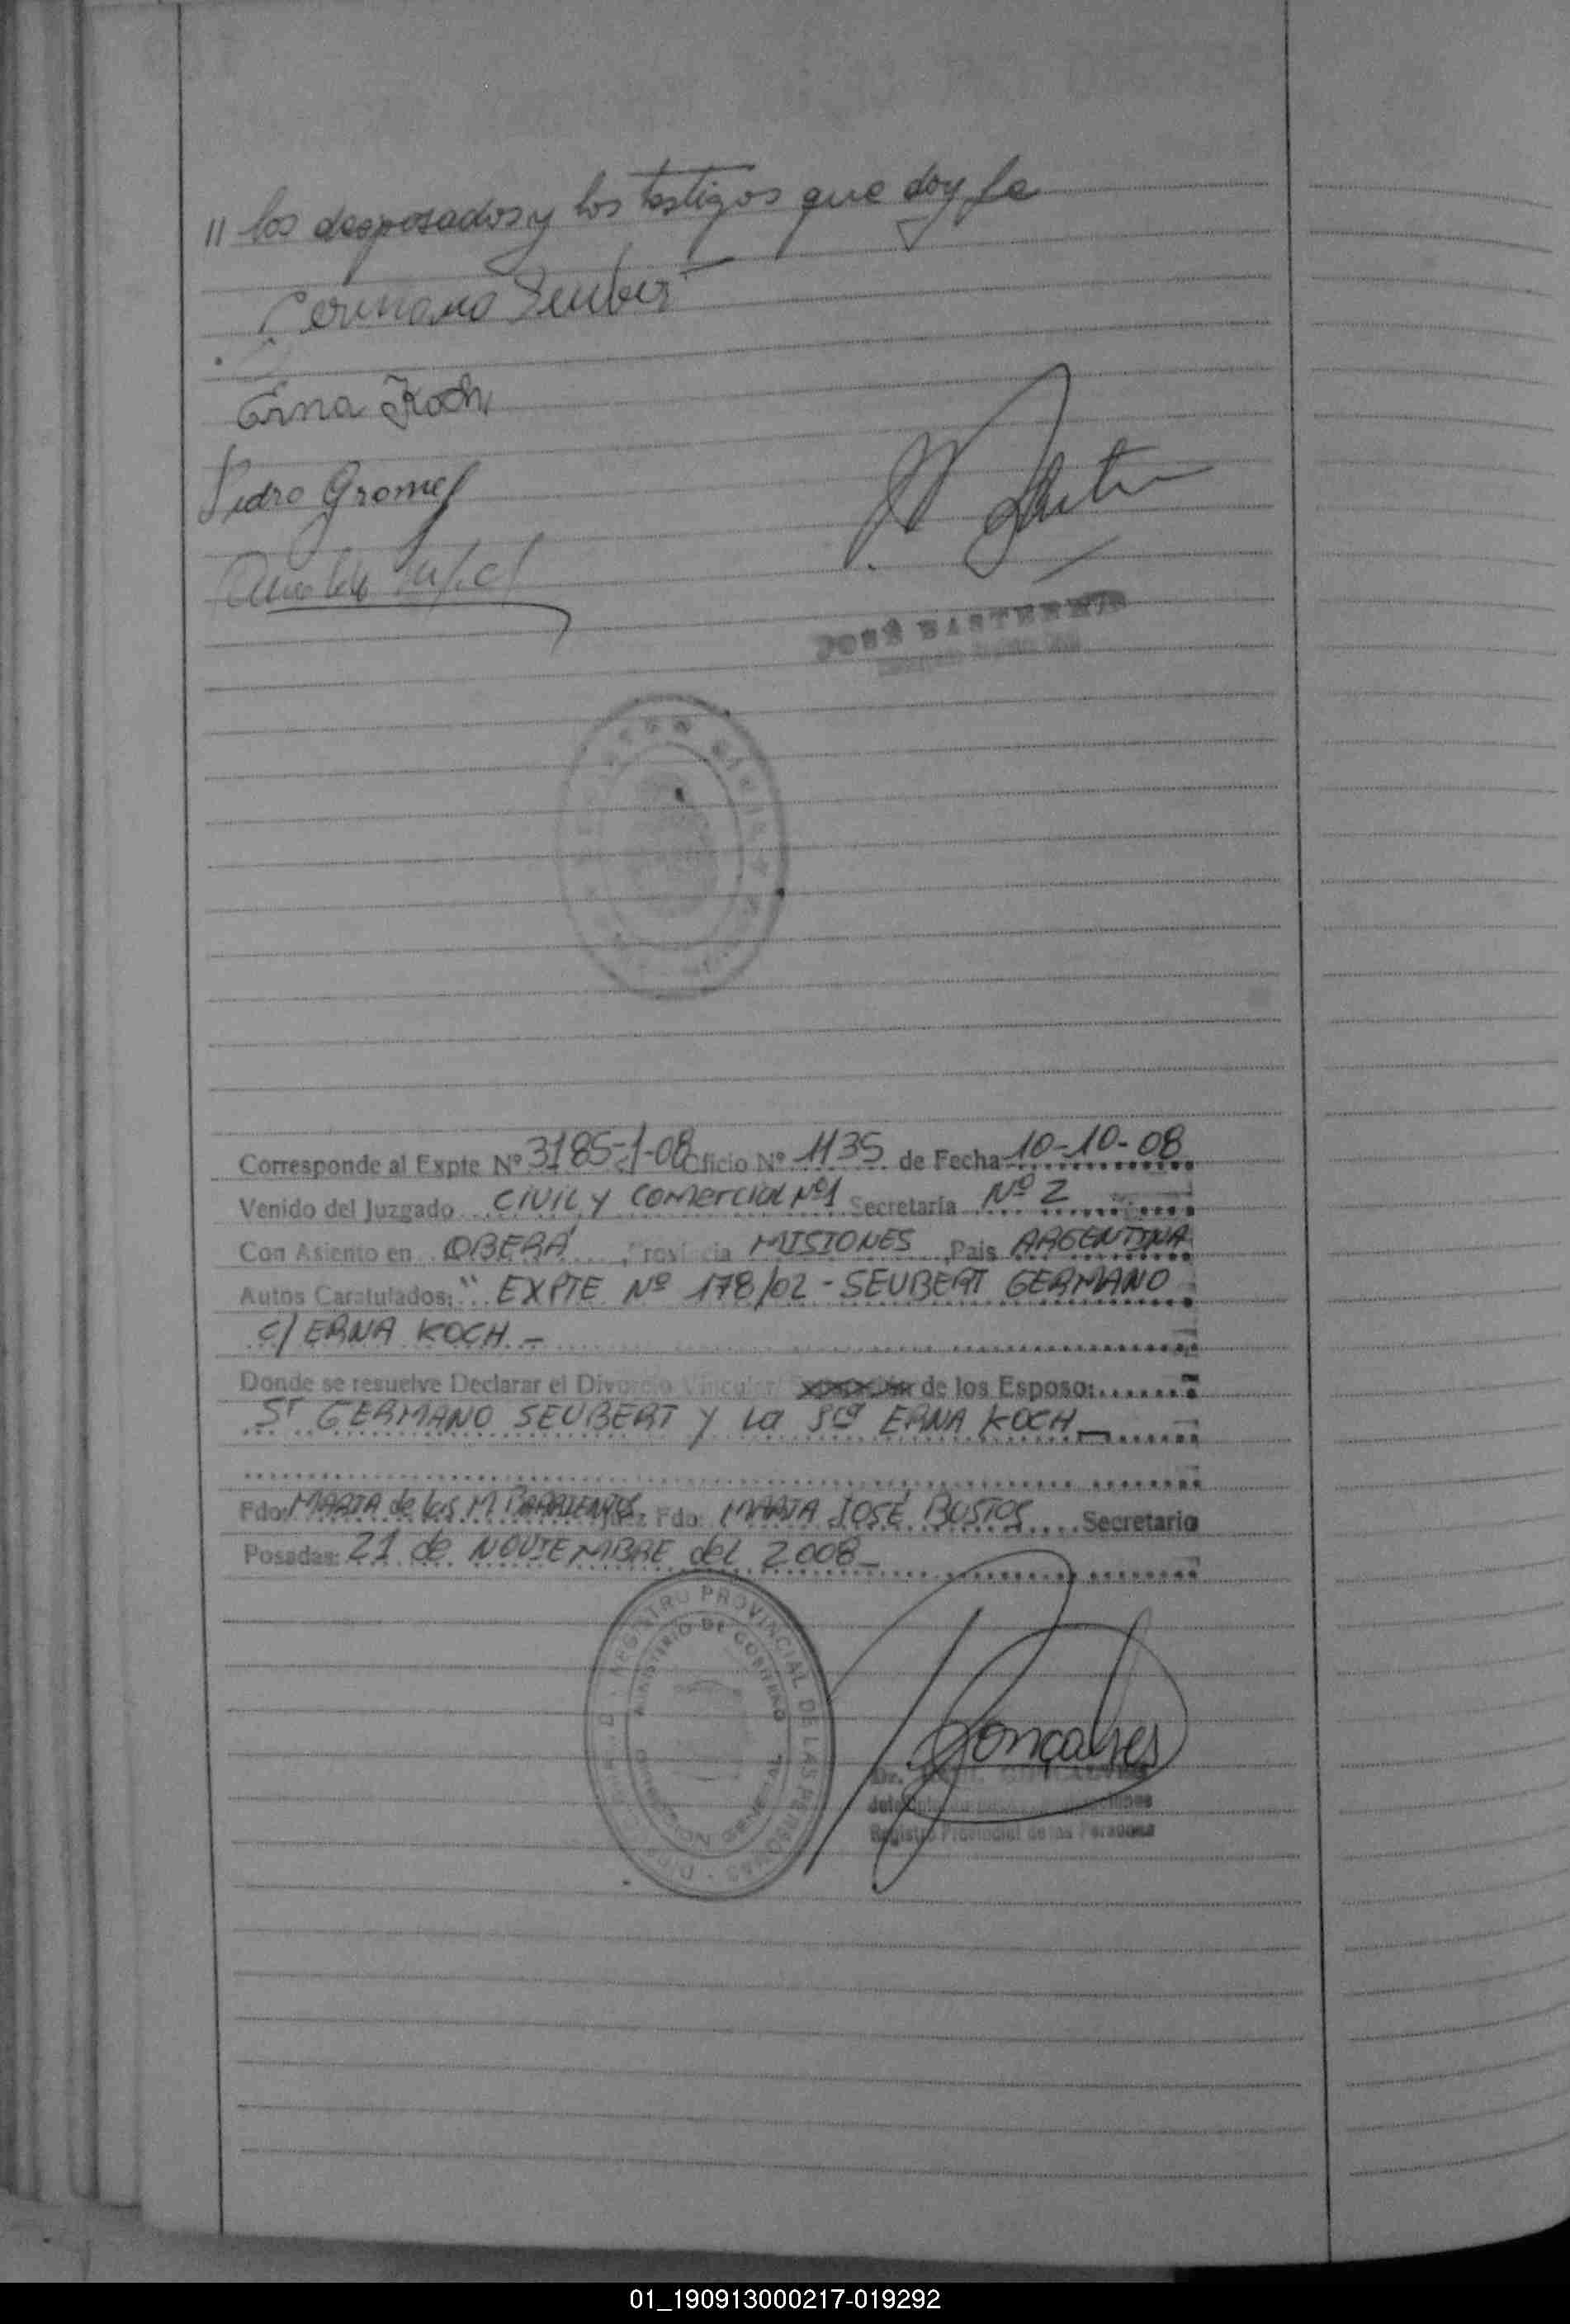 // los desposados y los testigos que doy fe
Germano Seubert
Erna Koch
Pedro Gromel
JOSÉ BASTERRE
Corresponde al Expte Nº 3185-1-08 Oficio Nº 1135 de Fecha 10-10-08
Venido del Juzgado CIVIL Y Comercial Nº1 Secretaría Nº 2
Con Asiento en OBERÁ, Provincia MISIONES País ARGENTINA
Autos Caratulados: "EXPTE Nº 178/02 - SEUBERT GERMANO
c/ ERNA KOCH -
Donde se resuelve Declarar el Divorcio Vincular de los Esposo:
Sr GERMANO SEUBERT Y La Sra ERNA KOCH -
Fdo: MARIA de los M. BARRIENTOS Juez Fdo: MARIA JOSÉ BUSTOS Secretario
Posadas: 21 de NOVIEMBRE del 2008 -
REGISTRO PROVINCIAL DE LAS PERSONAS
MINISTERIO DE GOBIERNO
DIRECCION GENERAL
Gonçalves
Dr. GONCALVES
Registro Provincial de las Personas
01_190913000217-019292